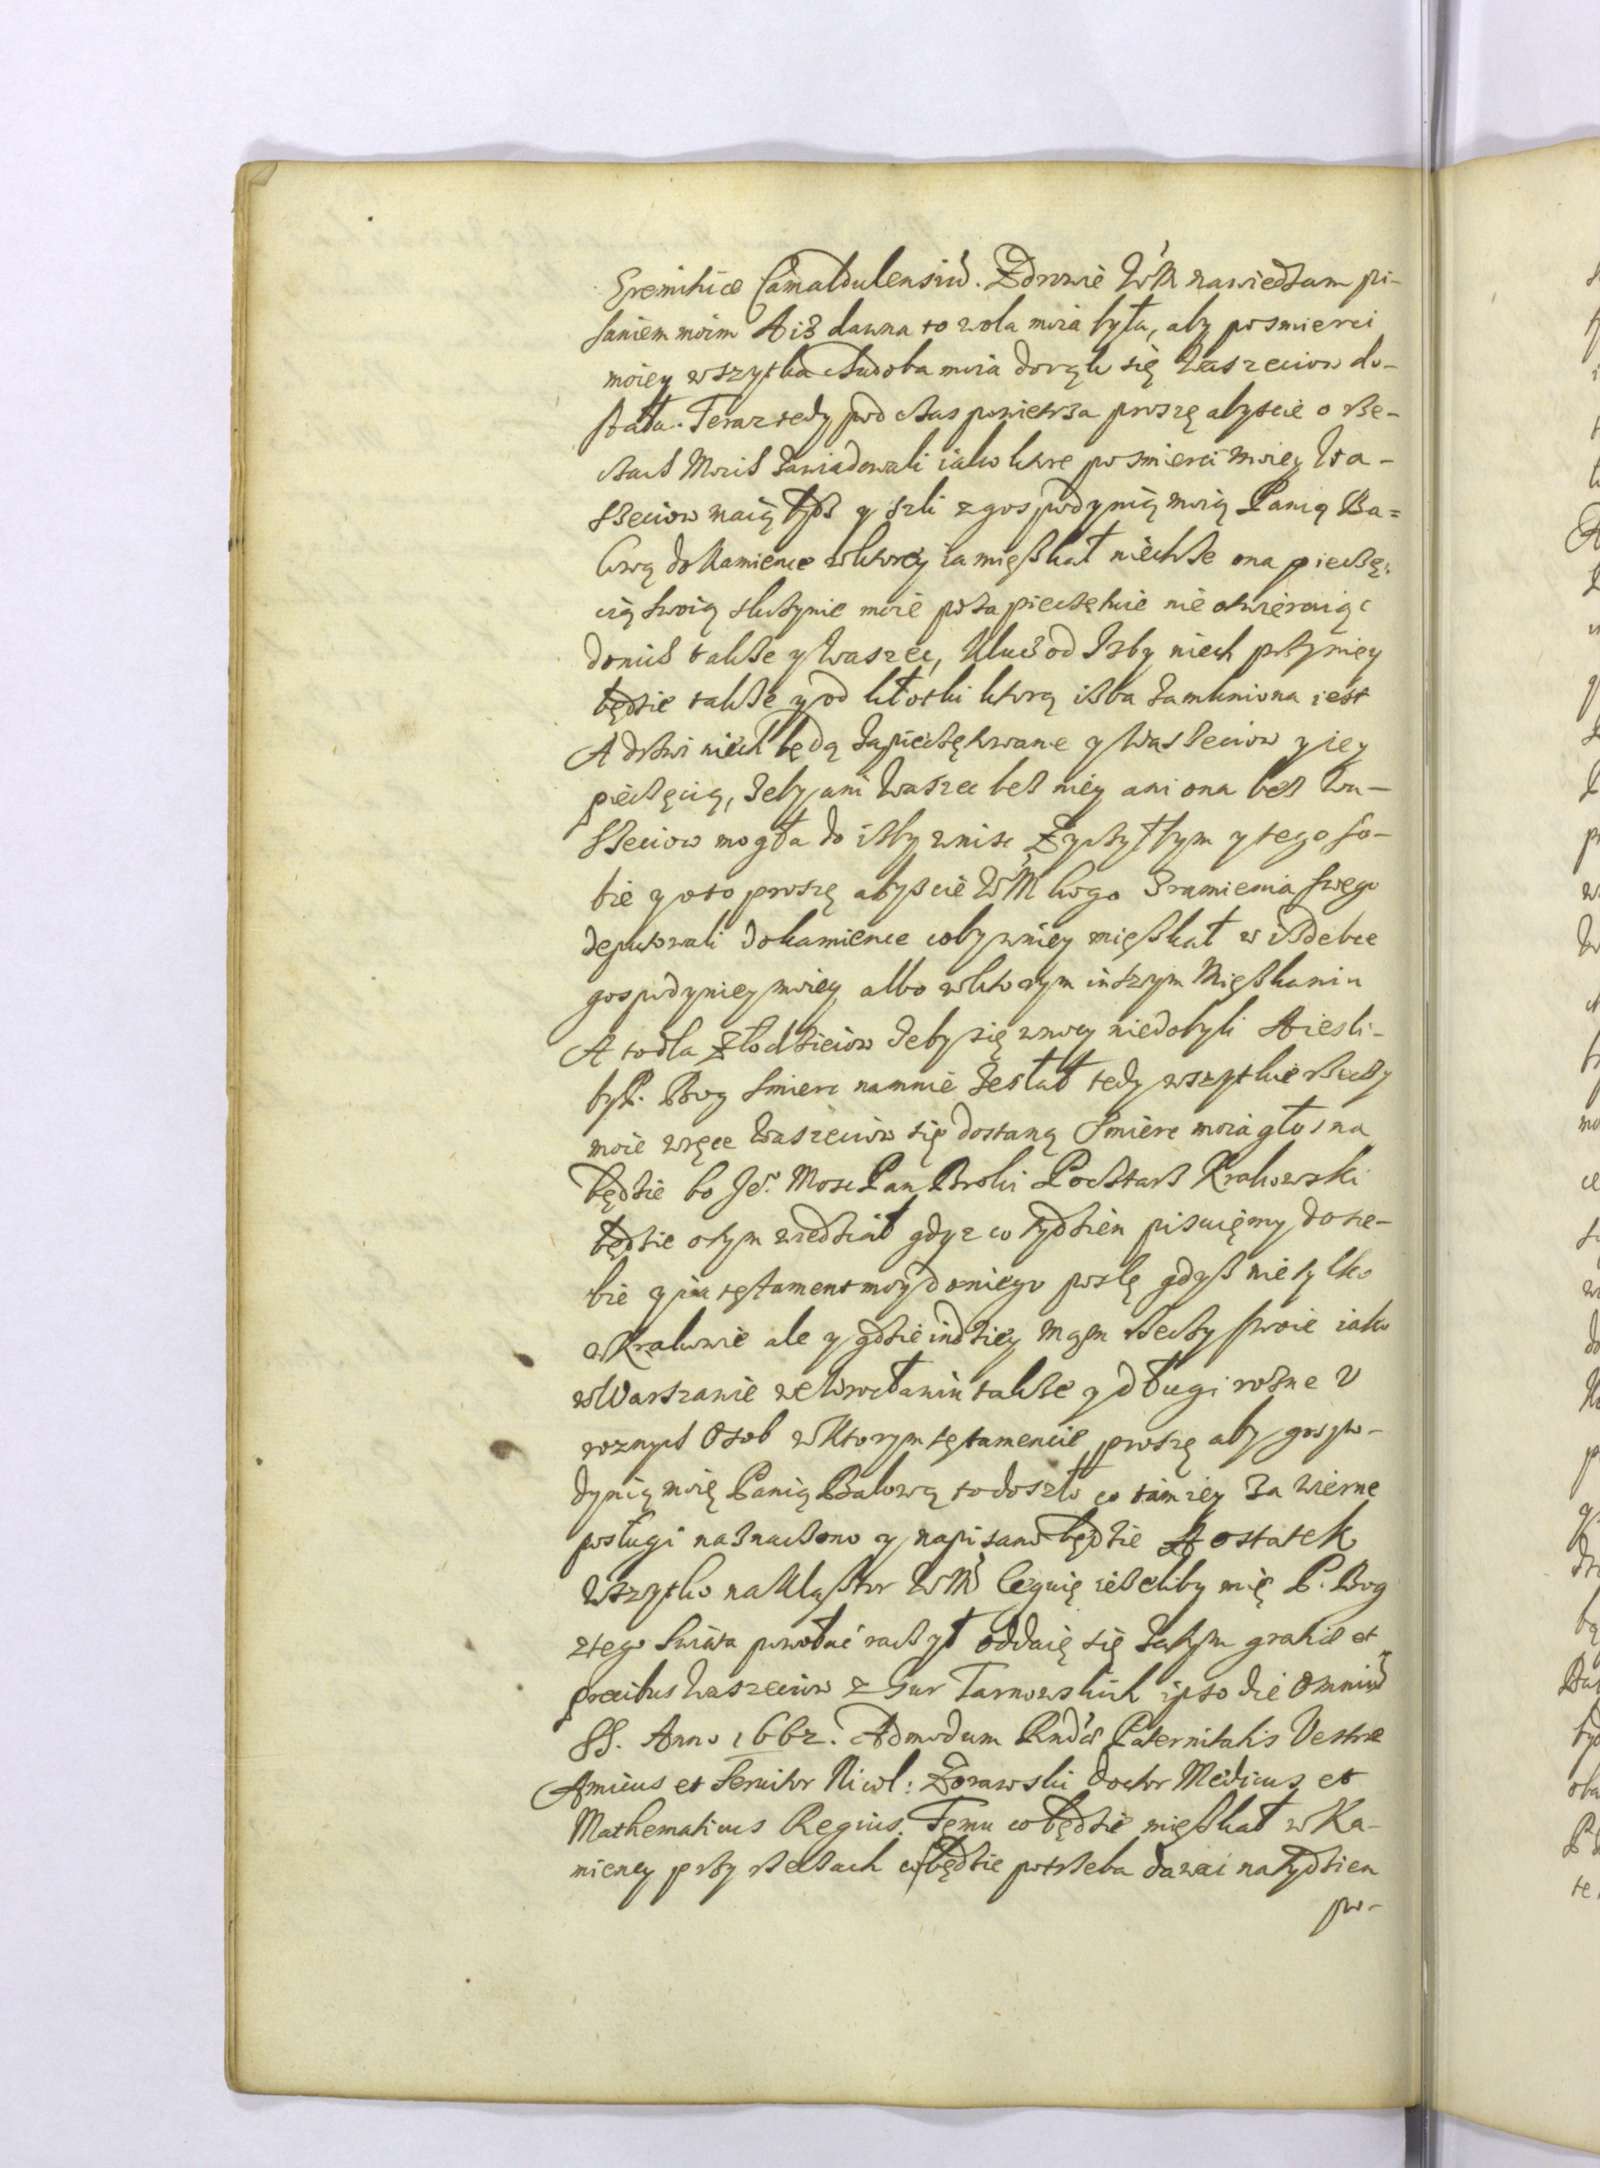 Eremiticæ Camaldulensiũ. Zdrowie WM nawiedzam pi-
saniem moim A iż dawna to wola moia była, aby po smierci
moiey wszytka chudoba moia do rąk się Waszeciow do-
stała. Teraz tedy pod czas powietrza proszę abyscie o rze-
czach moich zawiadowali iako ktore po smierci moiey Wa-
szeciow maią bydz y szli z gospodynią moią Panią Ba=
kową do kamienice w ktorey ia mięszkał niechże ona pieczę-
cią swoią skrzynie moie poza pieczętuie nie otwieraiąc
donich także y Waszec, Klucz od Izby niech przy niey
będzie także y od kłotki ktorą izba zamkniona iest
A drzwi niech będą zapieczętowane y Waszeciow y iey
pieczęcią, żeby ani Waszec bez niey ani ona bez Wa-
szeciow mogła do izby wnisc Zyczyłbym y tego so-
bie y oto proszę abyscie WM kogo z ramienia swego
deputowali do kamience coby w niey mięszkał w izdebce
gospodyniey moiey albo w ktorym inszym Mięszkaniu
A to dla Złodzieiow żeby się w nocy niedobyli A iesli-
by P. Bog smierc na mnie zesłał tedy wszytkie rzeczy
moie w ręce Waszeciow się dostaną Smierc moia głosna
będzie bo Je°. Mosc Pan Broki Poczstarz Krakowski
będzie o tym wiedział gdyz co tydzien pisuięmy do sie-
bie y ia tęstament moy do niego poslę gdysz nie tylko
w Krakowie ale y gdzie indziey mam rzeczy swoie iako
w Warszawie we Wrocławiu także y długi rożne v
roznych Osob w ktorym tęstamencie proszę aby gospo-
dynią moię Panią Bakową to doszło co tam iey za wierne
posługi naznaczono y napisano będzie A ostatek
wszytko na Klasztor WM leguię ieżeliby mię P. Bog
z tego swiata powołać raczył oddaię się zatym gratiæ et
precibus Waszeciow z Gur Tarnowskich ipso die Omniũ
SS. Anno 1662. Admodum Rndæ Paternitatis Vestræ
Amicus et Seruitor Nicol: Zorawski Doctor Medicus et
Mathematicus Regius. Tęmu co będzie mięszkał w Ka-
mienicy przy rzeczach co będzie potrzeba dawać na tydzien
po-